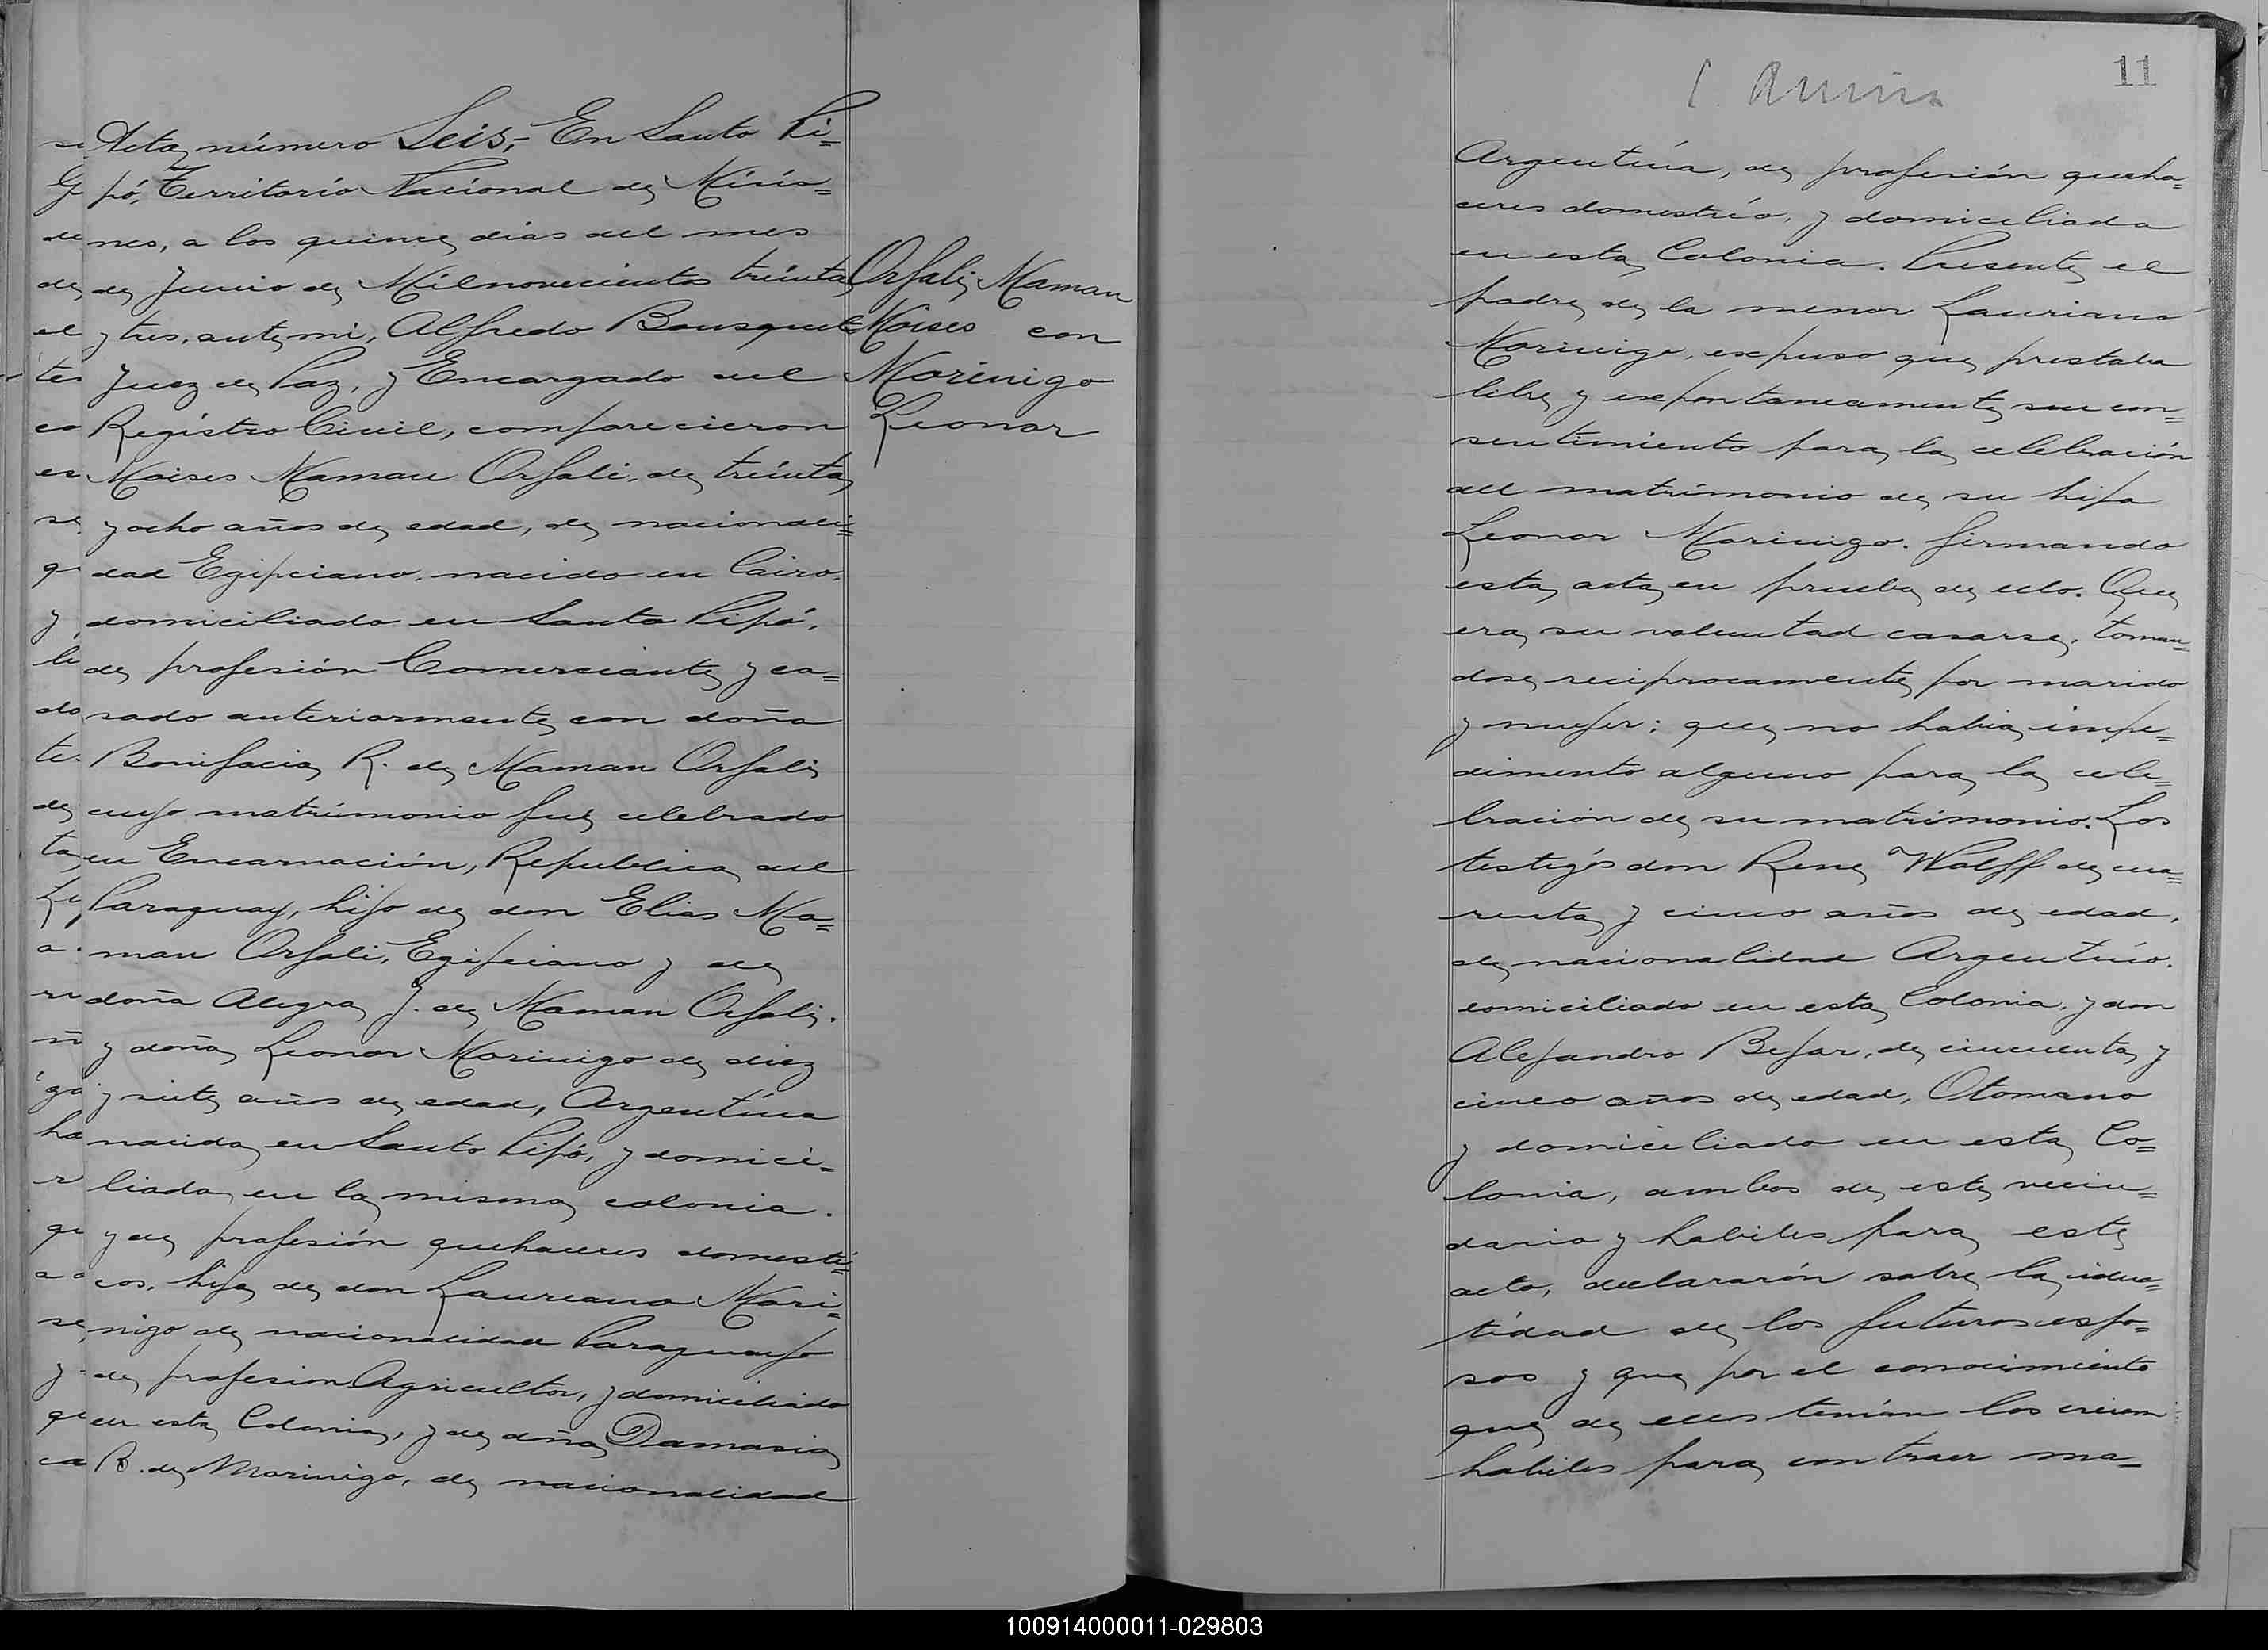 Acta número Seis,- En Santo Pi=
pó, Territorio Nacional de Misio=
nes, a los quince dias del mes
de Junio de Mil novecientos treinta
y tres, ante mi, Alfredo Bousquet
Juez de Paz, y Encargado del
Registro Civil, comparecieron
Moises Maman Orfali, de treinta
y ocho años de edad, de nacionali=
dad Egipciano, nacido en Cairo,
domiciliado en Santo Pipó,
de profesión Comerciante y ca=
sado anteriormente con doña
Bonifacia R. de Maman Orfali
cuyo matrimonio fue celebrado
en Encarnación, Republica del
Paraguay, hijo de don Elias Ma=
man Orfali, Egipciano y de
doña Alegra J. de Maman Orfali.
y doña Leonor Morinigo de diez
y siete años de edad, Argentina
nacida en Santo Pipó, y domici=
liada en la misma colonia.
y de profesión quehaceres domesti=
cos, hija de don Laureano Mori=
nigo de nacionalidad Paraguayo
de profesion Agricultor, y domiciliado
en esta Colonia, y de doña Damasia
B. de Morinigo, de nacionalidad
Orfali, Maman
Moises con
Morinigo
Leonor
11
Argentina, de profesión queha=
ceres domestico, y domiciliada
en esta Colonia. Presente el
padre de la menor Lauriano
Morinigo, expuso que prestaba
libre y expontaneamente su con=
sentimiento para la celebración
del matrimonio de su hija
Leonor Morinigo. firmando
esta acta en prueba de ello. Que
era su voluntad casarse, toman=
dose reciprocamente por marido
y mujer; que no habia impe=
dimento alguno para la cele=
bración de su matrimonio. Los
testigos don Rene Wolff de cua=
renta y cinco años de edad,
de nacionalidad Argentino.
domiciliado en esta Colonia, y don
Alejandro Bejar, de cincuenta y
cinco años de edad, Otomano
y domiciliado en esta Co=
lonia, ambos de este vecin=
dario y habiles para este
acto, declararón sobre la iden=
tidad de los futuros espo=
sos y que por el conocimiento
que de ellos tenian los creian
habiles para contraer ma=
100914000011-029803